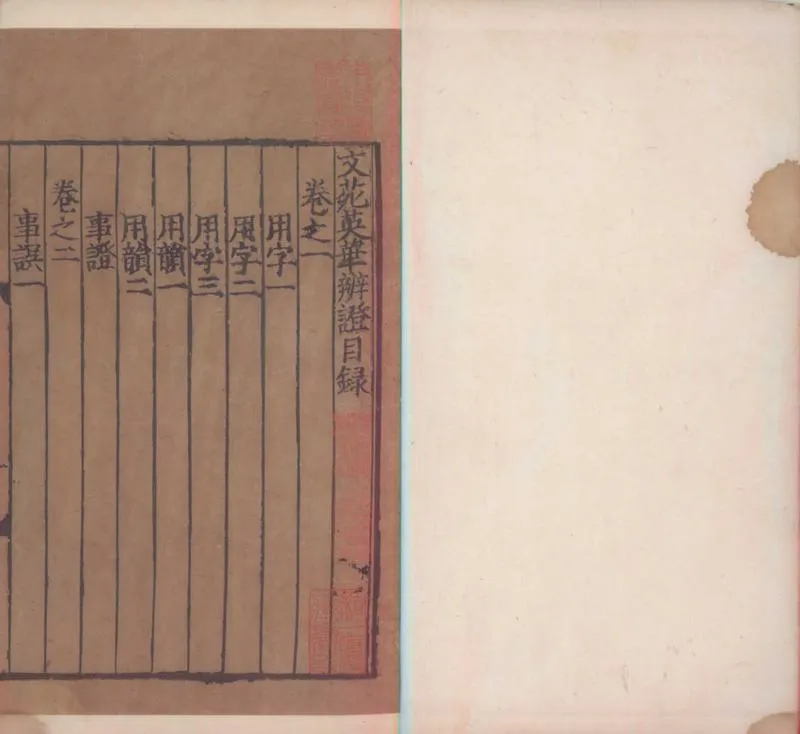 文苑英華辨證目録
卷之一
用字一
用字二
用字三
用韻一
用韻二
事證
卷之二
事誤一